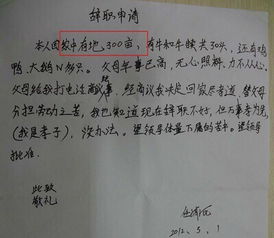 辞职申请
本人因家中有地300亩，有牛和牛犊共30头，还有鸡
鸭、大鹅N多只。父母年事已高，无心照料，力不从心。
父母给我打电话商议，经商议我决定回家尽孝道，替父母
分担劳动之苦，我也知道现在辞职不好，但万事孝为先
（我是孝子），没办法。望领导体量下属的苦衷。望领导
批准。
此致
敬礼
2012. 5. 1